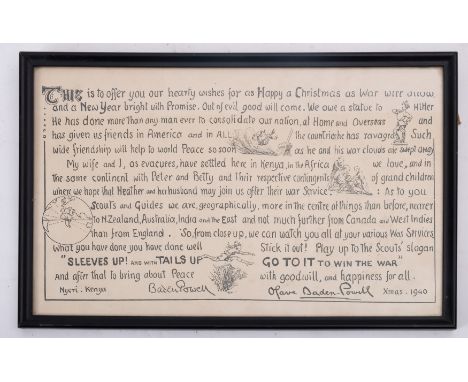 THIS is to offer you our hearty wishes for as Happy a Christmas as War will allow
and a New Year bright with Promise. Out of evil good will come. We owe a statue to Hitler
He has done more than any man ever to consolidate our nation, at Home and Overseas and
has given us friends in America and in ALL the countries he has ravaged Such
wide friendship will help to world Peace so soon as he and his war clouds are swept away
My wife and I, as evacuees, have settled here in Kenya, in the Africa we love, and in
the same continent with Peter and Betty and their respective contingents of grand children
where we hope that Heather and her husband may join us after their war Service. As to you
Scouts and Guides we are, geographically, more in the centre of things than before, nearer
to N.Zealand, Australia, India and the East and not much further from Canada and West Indies
than from England. So, from close up, we can watch you all at your various War Services
What you have done you have done well Stick it out! Play up to the Scouts' slogan
"SLEEVES UP! AND WITH TAILS UP GO TO IT TO WIN THE WAR"
And after that to bring about Peace with goodwill, and happiness for all.
Nyeri. Kenya Baden Powell Olave Baden-Powell Xmas. 1940